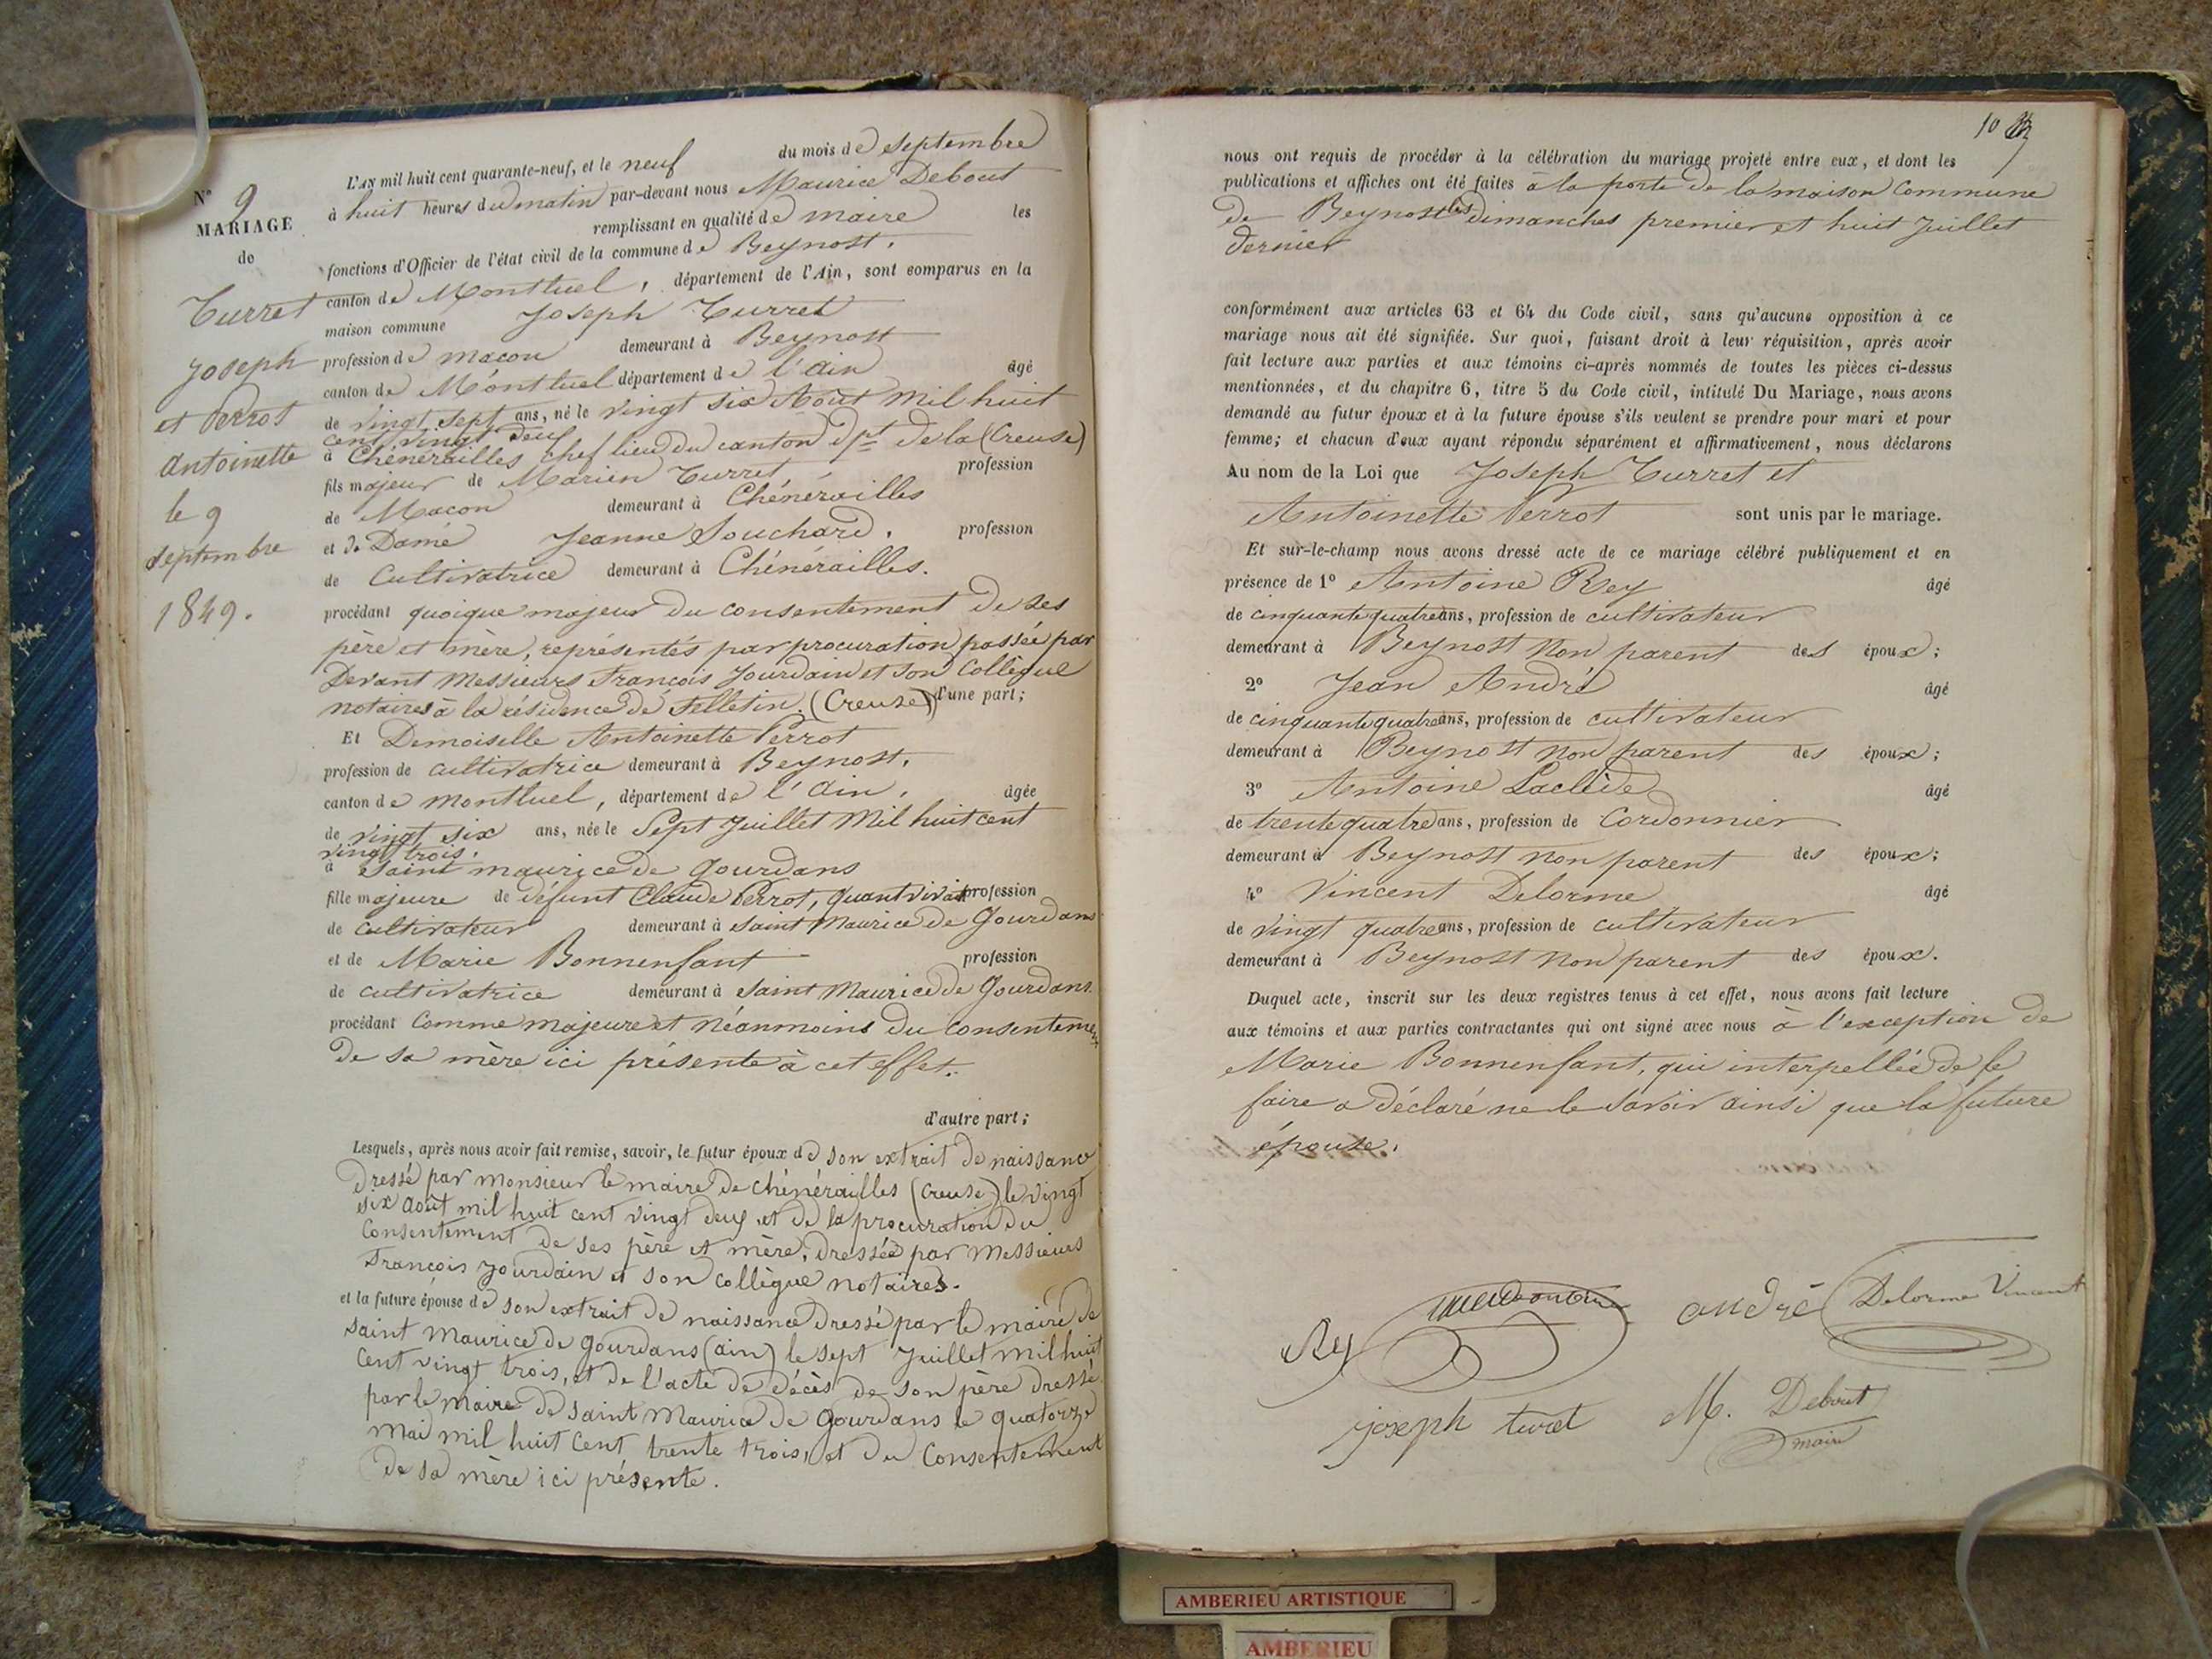 N° 9
MARIAGE
de
Turret
Joseph
et Perrot
Antoinette
le 9
septembre
1849.
L'AN mil huit cent quarante-neuf, et le neuf du mois de septembre
à huit heures du matin par-devant nous Maurice Debout
remplissant en qualité de maire les
fonctions d'Officier de l'état civil de la commune de Beynost.
canton de Montluel, département de l'Ain, sont comparus en la
maison commune Joseph Turret
profession de macon demeurant à Beynost
canton de Montluel département de l'ain âgé
de vingt sept ans, né le vingt six Août Mil huit
cent vingt deux
à Chénérailles chef lieu du canton dpt de la (Creuse)
fils majeur de Marien Turret profession
de Macon demeurant à Chénérailles
et de Dame Jeanne Souchard. profession
de Cultivatrice demeurant à Chénérailles.
procédant quoique majeur du consentement de ses
père et mère, représentés par procuration passée par
Devant Messieurs François Jourdain et son Collègue
notaires à la résidence de felletin. (Creuse) d'une part;
Et Demoiselle Antoinette Perrot
profession de cultivatrice demeurant à Beynost.
canton de montluel, département de l'ain. âgée
de vingt six ans, née le Sept Juillet Mil huit cent
vingt trois.
à Saint maurice de gourdans
fille majeure de défunt Claude Perrot, quant vivait profession
de cultivateur demeurant à saint Maurice de Gourdans
et de Marie Bonnenfant profession
de cultivatrice demeurant à saint Maurice de Gourdans.
procédant Comme majeure et néanmoins du consentement
De sa mère ici présente à cet effet.
d'autre part;
Lesquels, après nous avoir fait remise, savoir, le futur époux de son extrait de naissance
dressé par monsieur le maire de chénérailles (creuse) le vingt
six août mil huit cent vingt deux et de la procuration du
Consentement de ses père et mère, dressée par Messieurs
François Jourdain et son collègue notaires.
et la future épouse de son extrait de naissance dressé par le maire de
saint Maurice de gourdans (ain) le sept Juillet mil huit
cent vingt trois, et de l'acte de décès de son père dressé
par le Maire de saint Maurice de gourdans le quatorze
mai mil huit cent trente trois, et du Consentement
de sa mère ici présente.
10
nous ont requis de procéder à la célébration du mariage projeté entre eux, et dont les
publications et affiches ont été faites à la porte de la maison Commune
de Beynost les dimanches premier et huit Juillet
dernier
conformément aux articles 63 et 64 du Code civil, sans qu'aucune opposition à ce
mariage nous ait été signifiée. Sur quoi, faisant droit à leur réquisition, après avoir
fait lecture aux parties et aux témoins ci-après nommés de toutes les pièces ci-dessus
mentionnées, et du chapitre 6, titre 5 du Code civil, intitulé Du Mariage, nous avons
demandé au futur époux et à la future épouse s'ils veulent se prendre pour mari et pour
femme; et chacun d'eux ayant répondu séparément et affirmativement, nous déclarons
Au nom de la Loi que Joseph Turret et
Antoinette Perrot sont unis par le mariage.
Et sur-le-champ nous avons dressé acte de ce mariage célébré publiquement et en
présence de 1° Antoine Rey âgé
de cinquante quatre ans, profession de cultivateur
demeurant à Beynost non parent des époux;
2° Jean André âgé
de cinquante quatre ans, profession de cultivateur
demeurant à Beynost non parent des époux;
3° Antoine Laclède âgé
de trente quatre ans, profession de Cordonnier
demeurant à Beynost non parent des époux;
4° Vincent Delorme âgé
de vingt quatre ans, profession de cultivateur
demeurant à Beynost non parent des époux.
Duquel acte, inscrit sur les deux registres tenus à cet effet, nous avons fait lecture
aux témoins et aux parties contractantes qui ont signé avec nous à l'exception de
Marie Bonnenfant, qui interpellée de le
faire a déclaré ne le savoir ainsi que la future
épouse.
Rey andré Delorme Vincent
joseph turet M. Debout
maire
AMBERIEU ARTISTIQUE
AMBERIEU